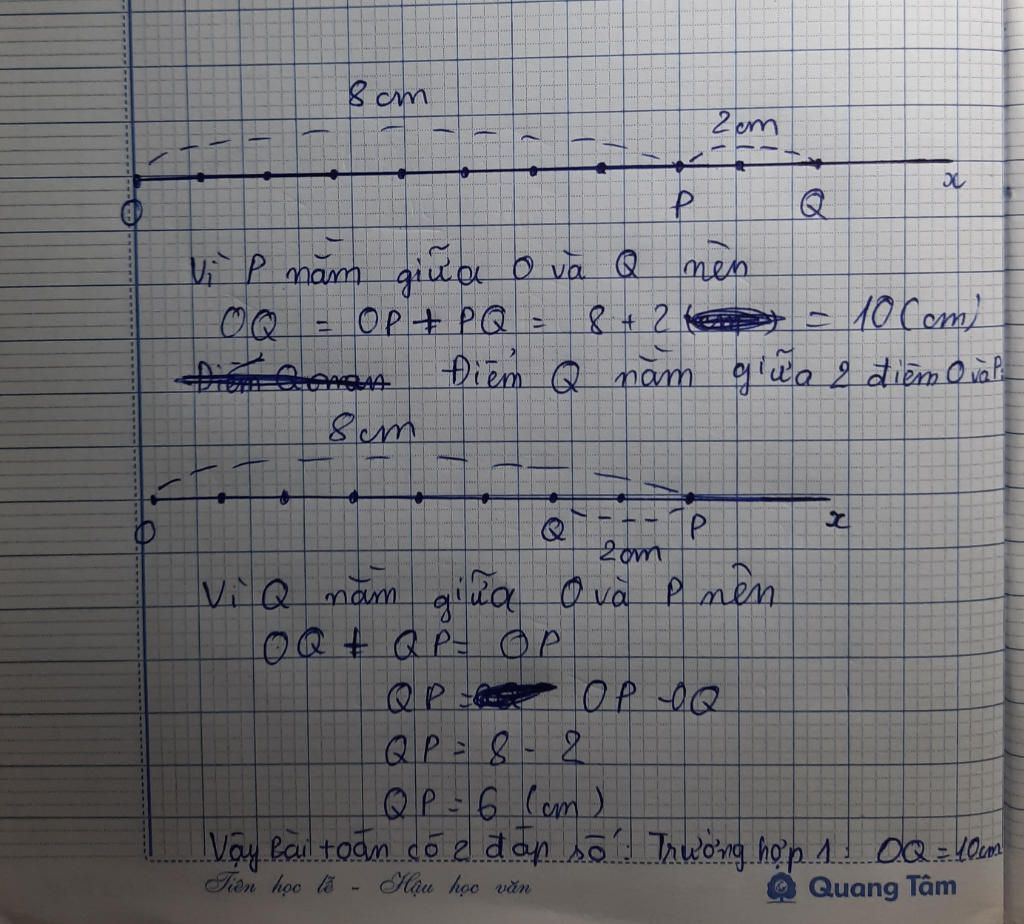 8 cm
2 cm
O P Q x
Vì P nằm giữa O và Q nên
OQ = OP + PQ = 8 + 2 = 10 (cm)
Điểm Q nằm giữa 2 điểm O và P.
8 cm
O Q P x
2 cm
Vì Q nằm giữa O và P nên
OQ + QP = OP
QP = OP - OQ
QP = 8 - 2
QP = 6 (cm)
Vậy bài toán có 2 đáp số: Trường hợp 1: OQ = 10cm
Tiên học lễ - Hậu học văn
Quang Tâm